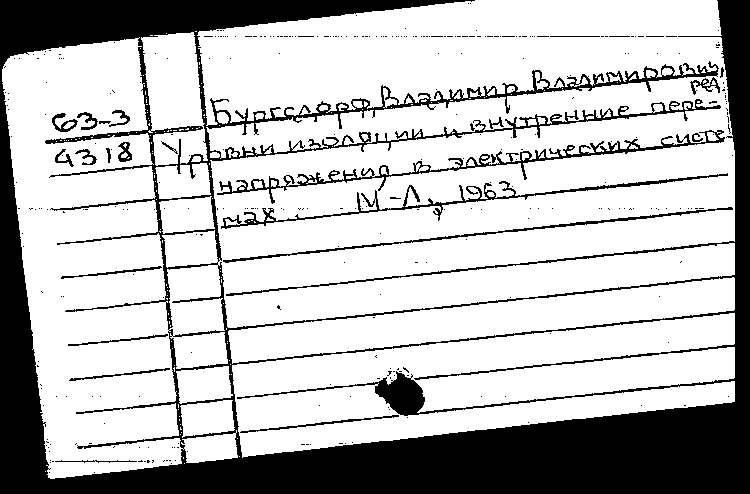 63-3 Бургсдорф, Владимир Владимирович,
ред.
4318 Уровни изоляции и внутренние пере-
напряжения в электрических систе
мах. М-Л., 1963.